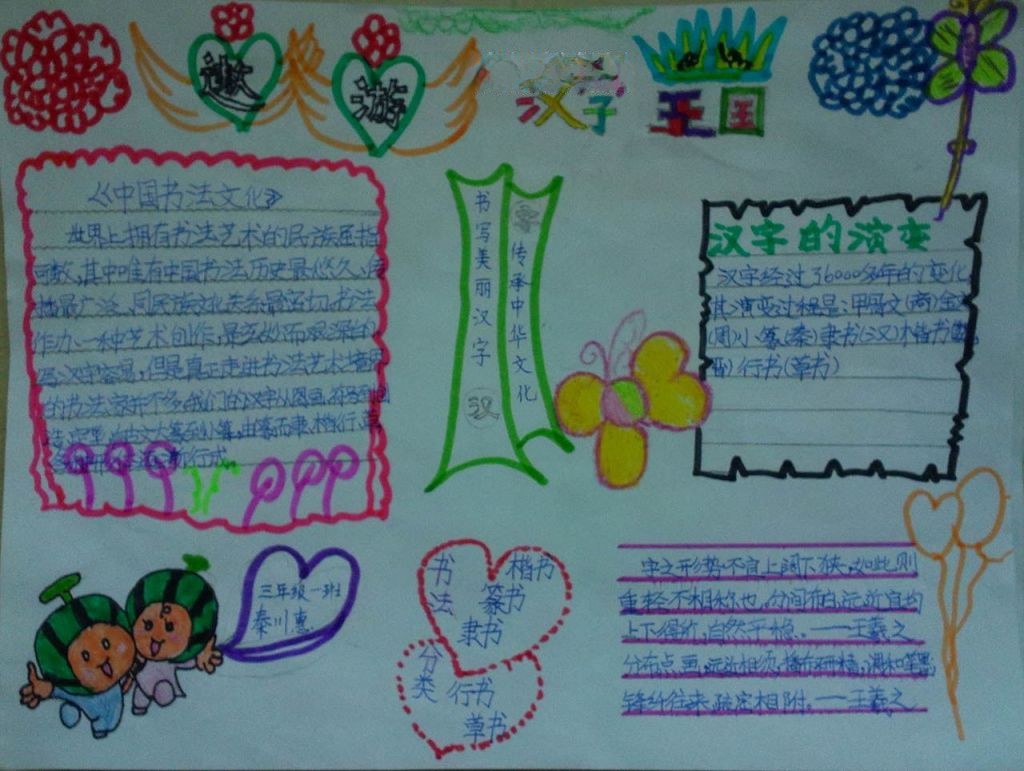 遨游
汉字王国
《中国书法文化》
世界上拥有书法艺术的民族屈指
可数,其中唯有中国书法历史最悠久、传
播最广泛、同民族文化关系最密切,书法
作为一种艺术创作,是
写汉字容易,但是真正走进书法艺术
的书法家并不多,我们的汉字从图画、符号到创
造、定型,由古文大篆到小篆,由篆而隶、楷、行、草,
各 形成
书写美丽汉字
汉
字
传承中华文化
汉字的演变
汉字经过了6000多年的变化,
其演变过程是:甲骨文(商)金
(周)小篆(秦)隶书(汉)楷书(魏
晋)行书(草书)
三年级一班
秦川惠
书法
楷书
篆书
隶书
分类
行书
草书
字之形势不宜上阔下狭,如此则
重轻不相称也,分间布白,远近宜均
上下得所,自然平稳。——王羲之
分布点画,远近相须,播布研精,调和笔墨
锋纤往来,疏密相附。——王羲之